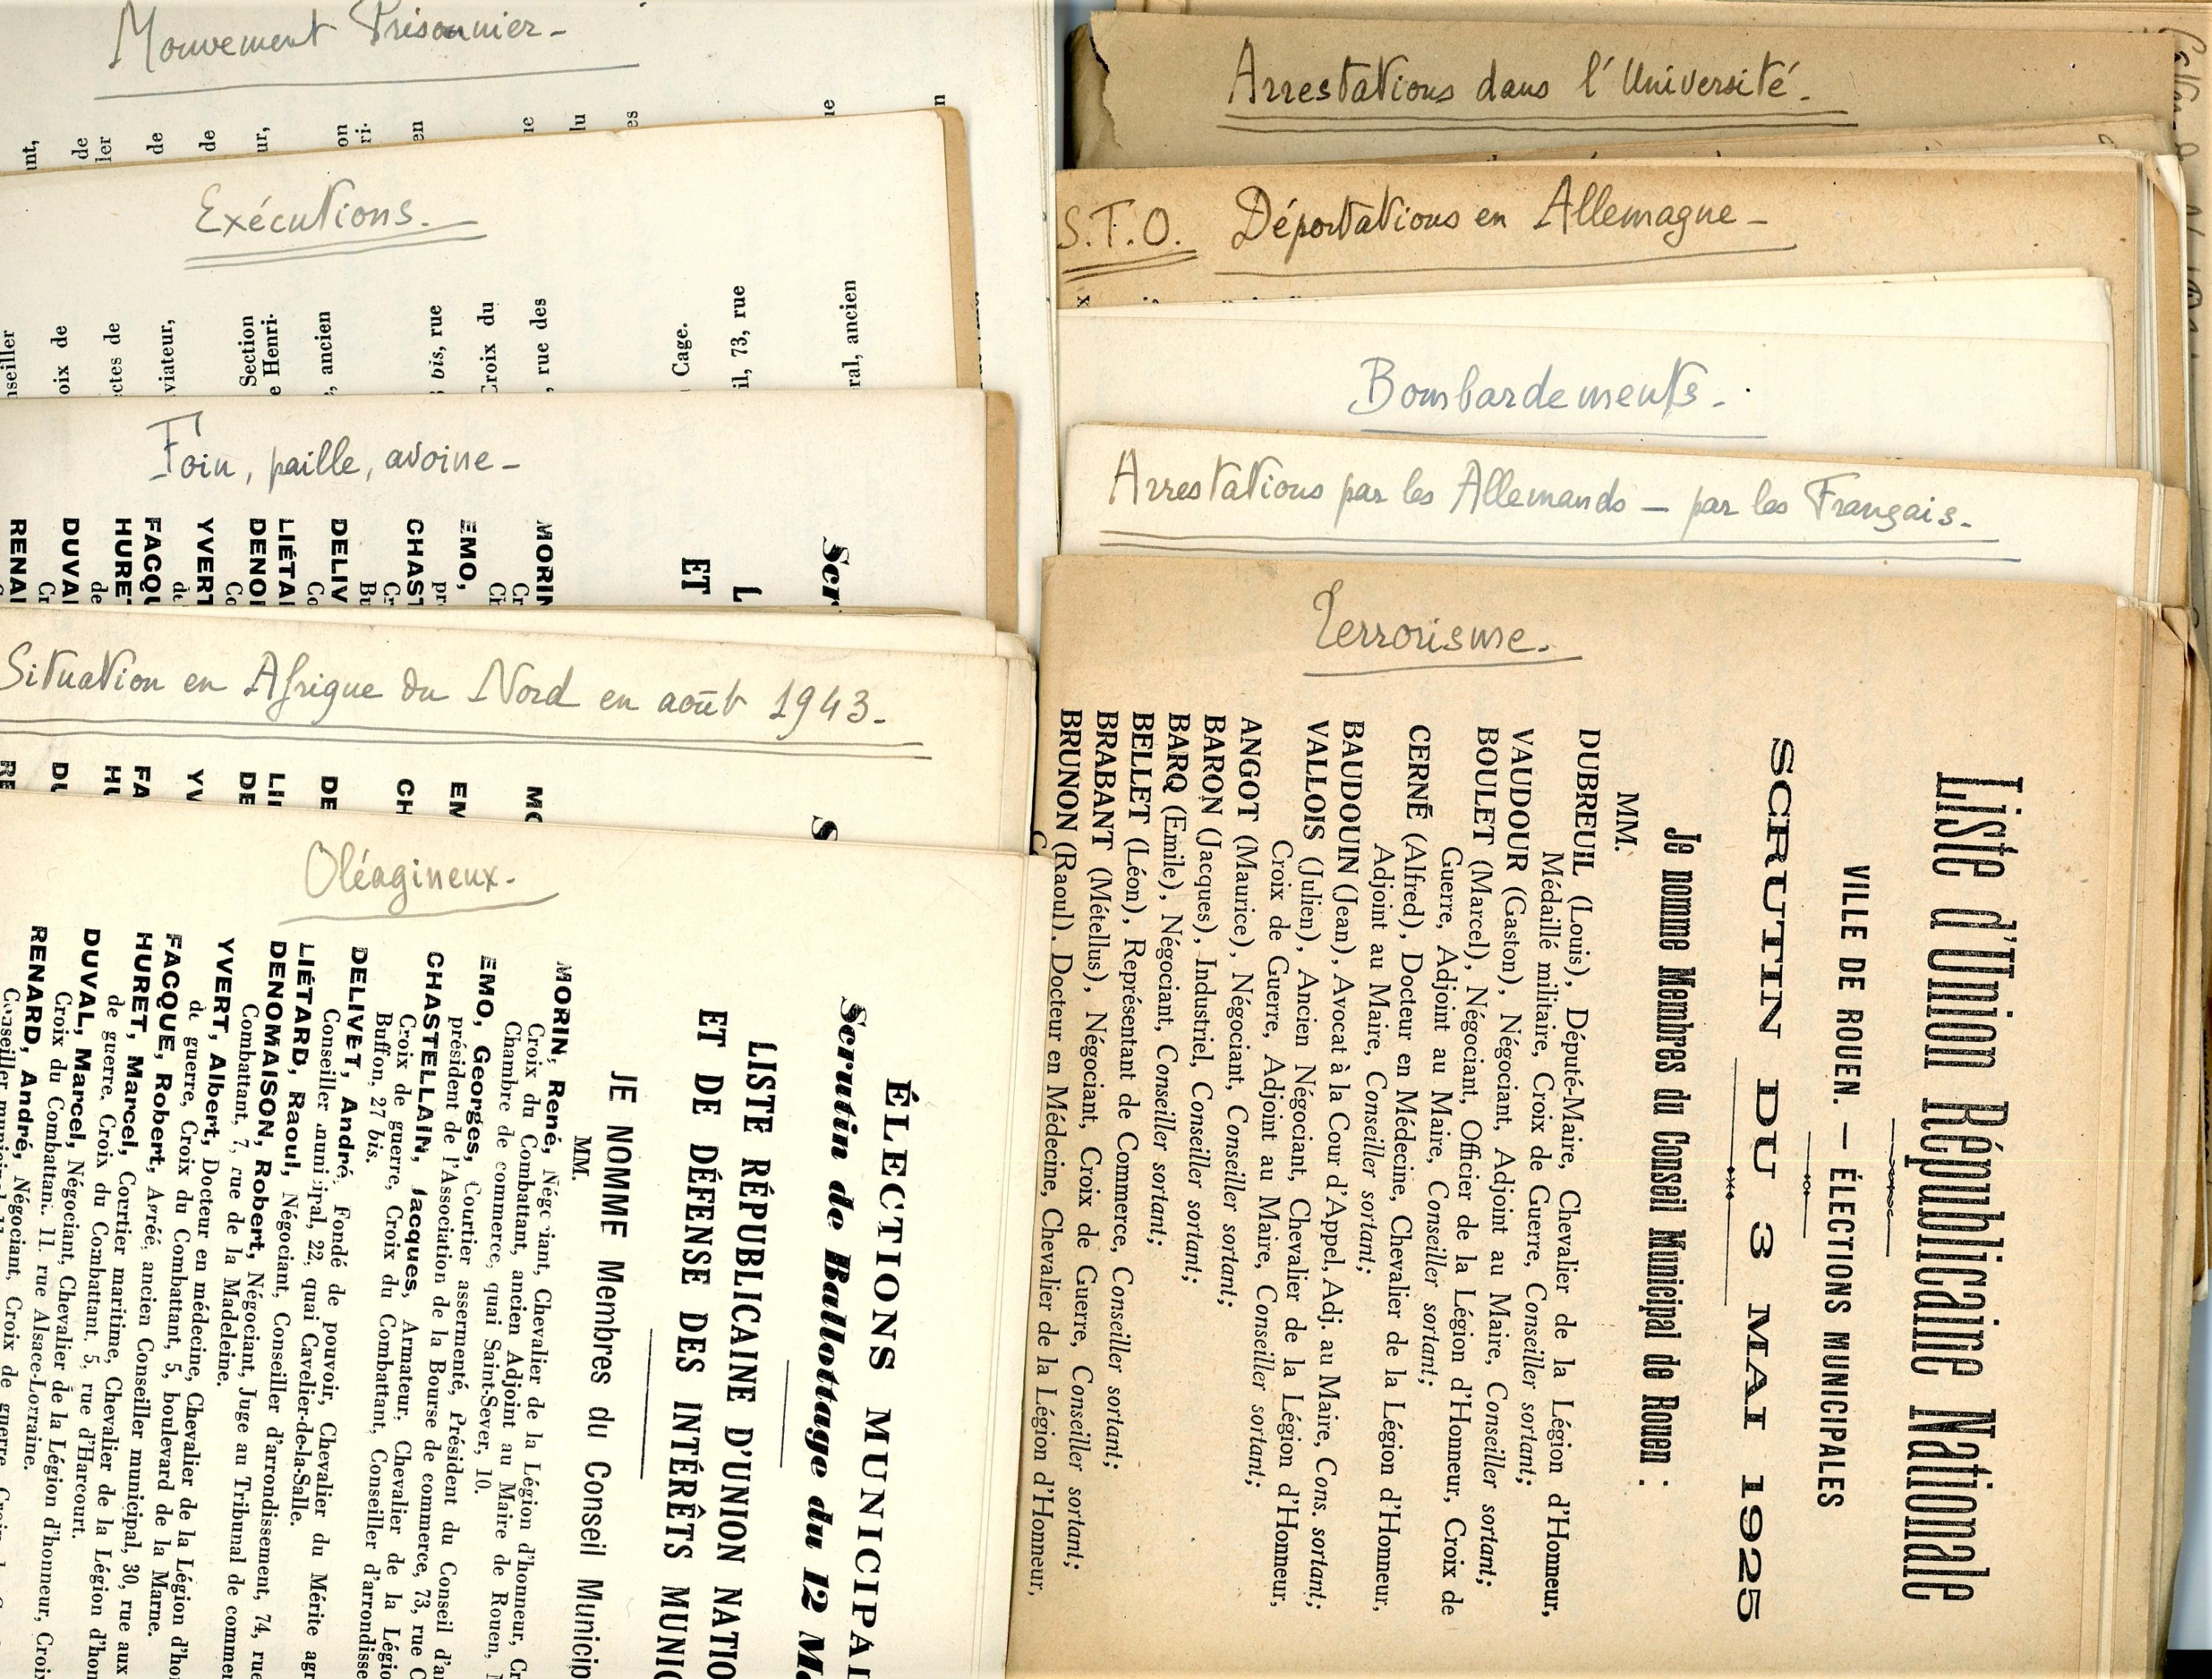 Mouvement Prisonnier -
Exécutions. -
nseiller
oix de
ctes de
viateur,
Section
e Henri.
, ancien
bis, rue
Croix du
, rue des
Cage.
il, 73, rue
ral, ancien
Foin, paille, avoine -
Scr
L
ET
MORIN
EMO,
CHAST
DELIV
LIÉTA
DENO
YVERT
FACQU
HURE
DUVA
RENA
Situation en Afrique du Nord en août 1943. -
S
MO
EM
CH
DE
LI
DE
YV
FA
HU
DU
RE
Oléagineux. -
ÉLECTIONS MUNICIPAL
Scrutin de Ballottage du 12 Ma
LISTE RÉPUBLICAINE D'UNION NATIO
ET DE DÉFENSE DES INTÉRÊTS MUNIC
JE NOMME Membres du Conseil Municip
MM.
MORIN, René, Négociant, Chevalier de la Légion d'honneur, Cr
Croix du Combattant, ancien Adjoint au Maire de Rouen,
Chambre de commerce, quai Saint-Sever, 10.
EMO, Georges, Courtier assermenté, Président du Conseil d'a
président de l'Association de la Bourse de commerce, 73, rue
CHASTELLAIN, Jacques, Armateur, Chevalier de la Légio
Croix de guerre, Croix du Combattant, Conseiller d'arrondisse
Buffon, 27 bis.
DELIVET, André, Fondé de pouvoir, Chevalier du Mérite agr
Conseiller municipal, 22, quai Cavelier-de-la-Salle.
LIÉTARD, Raoul, Négociant, Conseiller d'arrondissement, 74, rue
DENOMAISON, Robert, Négociant, Juge au Tribunal de commer
Combattant, 7, rue de la Madeleine.
YVERT, Albert, Docteur en médecine, Chevalier de la Légion d'ho
de guerre, Croix du Combattant, 5, boulevard de la Marne.
FACQUE, Robert, Agréé, ancien Conseiller municipal, 30, rue aux
HURET, Marcel, Courtier maritime, Chevalier de la Légion d'hon
de guerre, Croix du Combattant, 5, rue d'Harcourt.
DUVAL, Marcel, Négociant, Chevalier de la Légion d'honneur, Croix
Croix du Combattant, 11, rue Alsace-Lorraine.
RENARD, André, Négociant, Croix de guerre, Croix de
Conseiller municipal
Arrestations dans l'Université. -
S.T.O. Déportations en Allemagne -
Bombardements. -
Arrestations par les Allemands - par les Français. -
Terrorisme. -
Liste d'Union Républicaine Nationale
VILLE DE ROUEN. — ÉLECTIONS MUNICIPALES
SCRUTIN DU 3 MAI 1925
Je nomme Membres du Conseil Municipal de Rouen :
MM.
DUBREUIL (Louis), Député-Maire, Chevalier de la Légion d'Honneur,
Médaillé militaire, Croix de Guerre, Conseiller sortant;
VAUDOUR (Gaston), Négociant, Adjoint au Maire, Conseiller sortant;
BOULET (Marcel), Négociant, Officier de la Légion d'Honneur, Croix de
Guerre, Adjoint au Maire, Conseiller sortant;
CERNÉ (Alfred), Docteur en Médecine, Chevalier de la Légion d'Honneur,
Adjoint au Maire, Conseiller sortant;
BAUDOUIN (Jean), Avocat à la Cour d'Appel, Adj. au Maire, Cons. sortant;
VALLOIS (Julien), Ancien Négociant, Chevalier de la Légion d'Honneur,
Croix de Guerre, Adjoint au Maire, Conseiller sortant;
ANGOT (Maurice), Négociant, Conseiller sortant;
BARON (Jacques), Industriel, Conseiller sortant;
BARQ (Emile), Négociant, Conseiller sortant;
BELLET (Léon), Représentant de Commerce, Conseiller sortant;
BRABANT (Métellus), Négociant, Croix de Guerre, Conseiller sortant;
BRUNON (Raoul), Docteur en Médecine, Chevalier de la Légion d'Honneur,